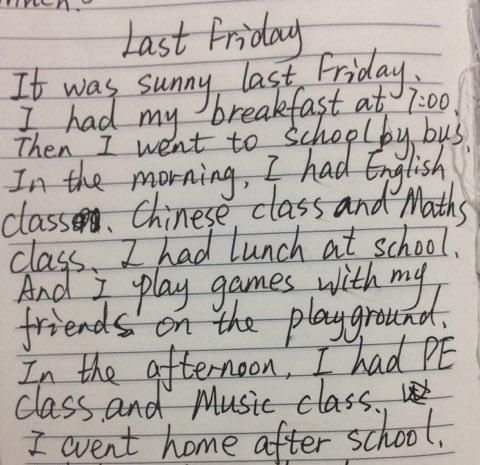 Last Friday
It was sunny last Friday.
I had my breakfast at 7:00.
Then I went to school by bus.
In the morning, I had English
class. Chinese class and Maths
class. I had lunch at school.
And I play games with my
friends on the playground.
In the afternoon, I had PE
class and Music class.
I went home after school.